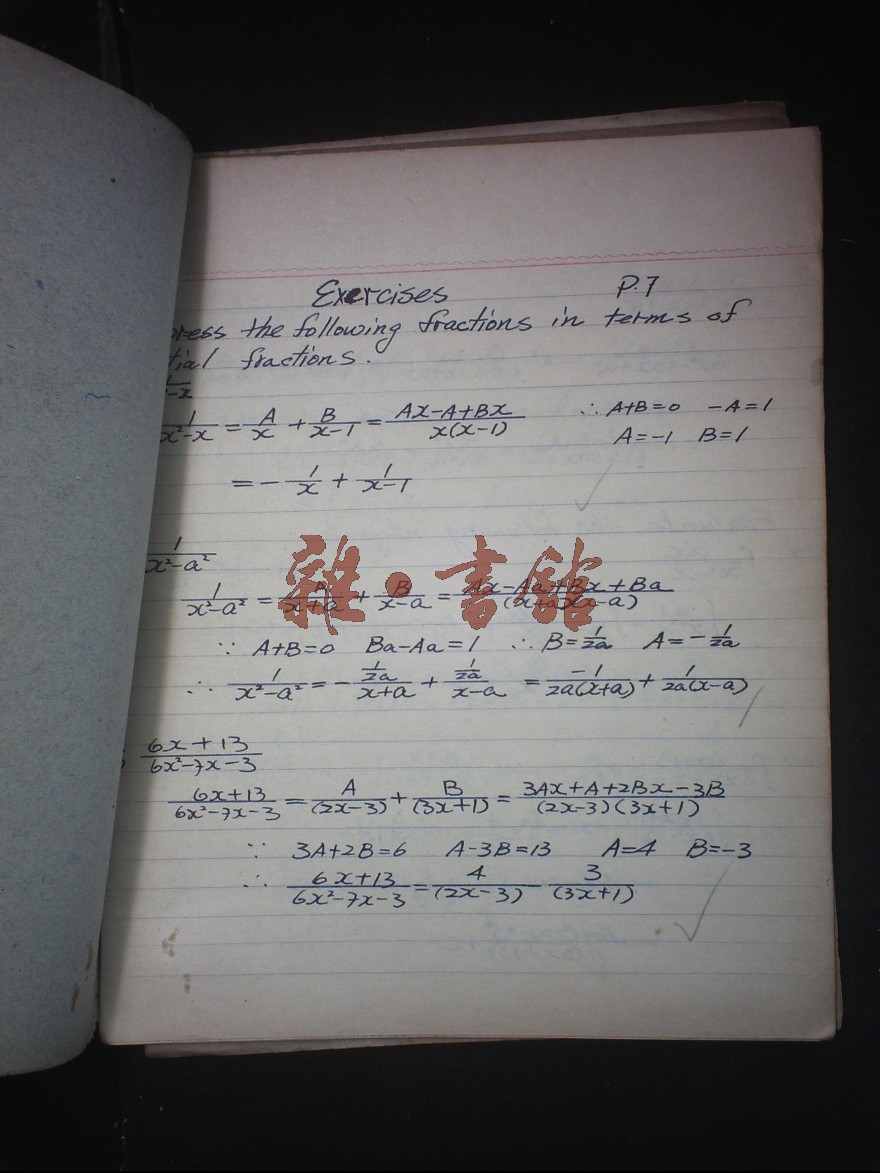 Exercises P.7
press the following fractions in terms of
tial fractions.
1/x²-x
1/x²-x = A/x + B/x-1 = Ax-A+Bx/x(x-1) ∴ A+B=0 -A=1
A=-1 B=1
= - 1/x + 1/x-1
1/x²-a²
1/x²-a² = A/x+a + B/x-a = Ax-Aa+Bx+Ba/(x+a)(x-a)
雜·書館
∵ A+B=0 Ba-Aa=1 ∴ B=1/2a A=-1/2a
∴ 1/x²-a² = - 1/2a/x+a + 1/2a/x-a = -1/2a(x+a) + 1/2a(x-a)
6x+13/6x²-7x-3
6x+13/6x²-7x-3 = A/(2x-3) + B/(3x+1) = 3Ax+A+2Bx-3B/(2x-3)(3x+1)
∵ 3A+2B=6 A-3B=13 A=4 B=-3
∴ 6x+13/6x²-7x-3 = 4/(2x-3) - 3/(3x+1)